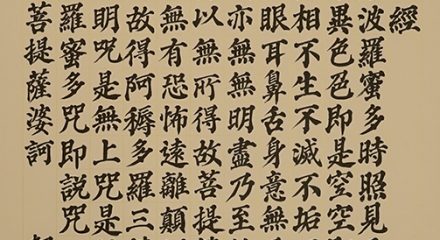 經
波羅蜜多時照見
異色色即是空空
相不生不滅不垢
眼耳鼻舌身意無
亦無無明盡乃至
以無所得故菩提
無有恐怖遠離顛
故得阿耨多羅三
明呪是無上咒是
羅蜜多咒即説咒
菩提薩婆訶